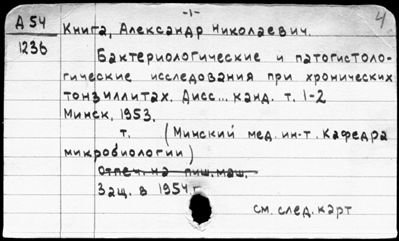 -1-
4
А 54
1236
Книга, Александр Николаевич.
Бактериологические и патогистоло-
гические исследования при хронических
тонзиллитах. Дисс... канд. т. 1-2
Минск, 1953.
т. (Минский мед. ин-т. Кафедра
микробиологии)
Отпеч. на пиш. маш.
Защ. в 1954 г
см. след. карт